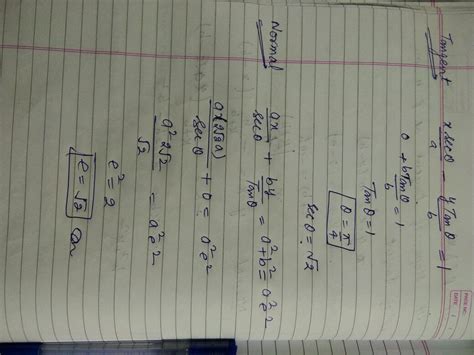 PAGE NO.
DATE: / /
Tangent x secθ / a − y Tanθ / b = 1
0 + b Tanθ / b = 1
Tanθ = 1
θ = π/4
secθ = √2
Normal ax / secθ + by / Tanθ = a² + b² = a²e²
a × (2√2a) / secθ + 0 = a²e²
a² 2√2 / √2 = a²e²
e² = 2
e = √2